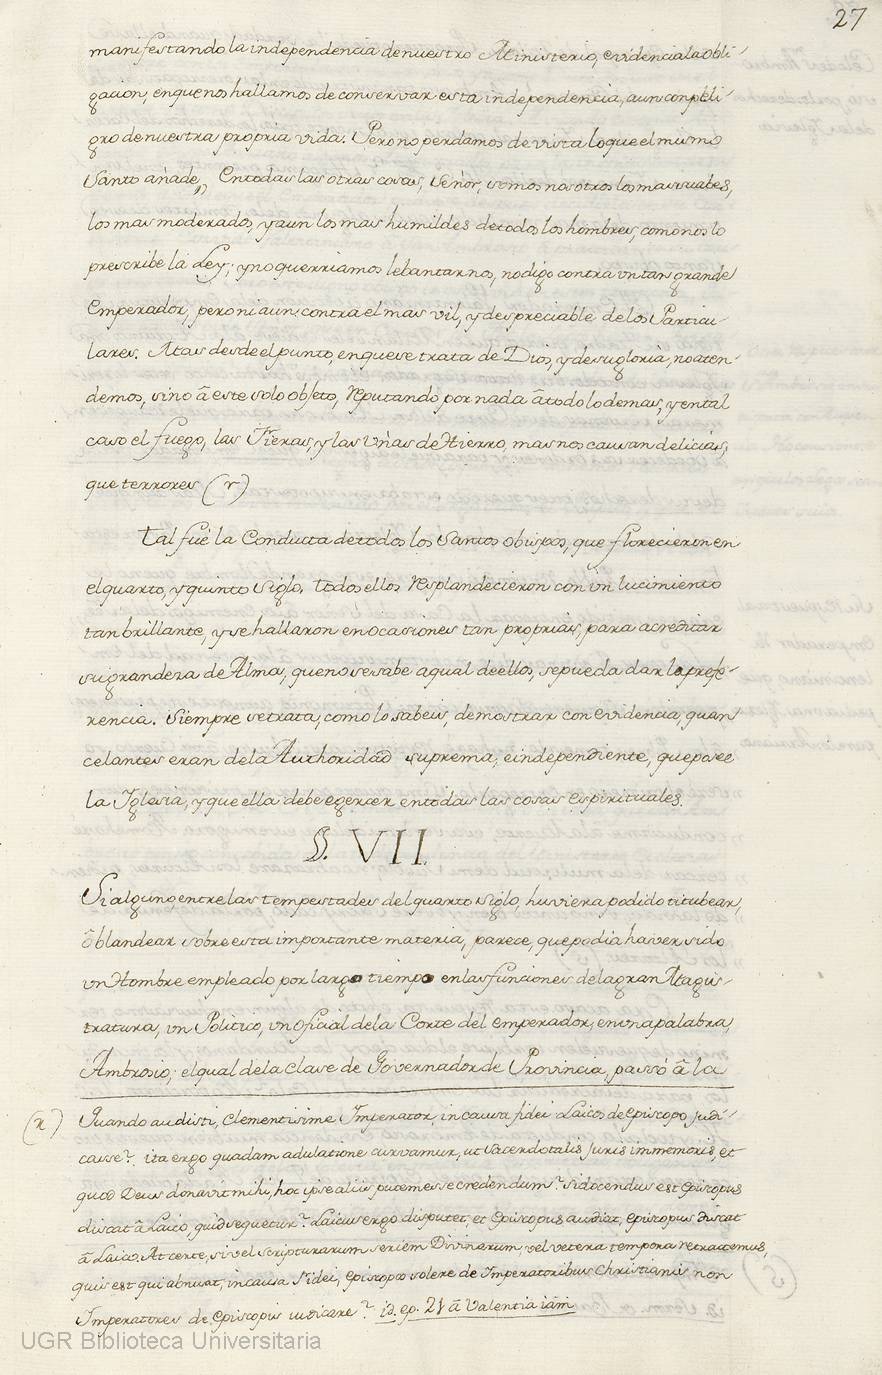 27
manifestando la independencia de nuestro Ministerio, evidencia la obli-
gacion, en que nos hallamos de conservar esta independencia, aun con peli-
gro de nuestra propria vida. Pero no perdamos de vista lo que el mismo
Santo añade,, En todas las otras cosas, Señor, somos nosotros los mas suabes,
los mas moderados, y aun los mas humildes de todos los hombres, como nos lo
prescribe la Ley; y no querriamos lebantarnos, no digo contra un tan grande
Emperador, pero ni aun contra el mas vil, y despreciable de los Particu-
lares. Mas desde el punto, en que se trata de Dios, y de su gloria, no aten-
demos, sino â este solo objeto, reputando por nada â todo lo demas, y en tal
caso el fuego, las Fieras, y las Uñas de Hierro, mas nos causan delicias,
que terrores (r)
Tal fué la Conducta de todos los Santos obispos, que florecieron en
el quarto, y quinto Siglo. Todos ellos resplandecieron con un lucimiento
tan brillante, y se hallaron en ocasiones tan proprias, para acreditar
su grandeza de Alma, que no se sabe a qual de ellos, se pueda dar la prefe-
rencia. Siempre se trata, como lo sabeis, de mostrar con evidencia, quan
celantes eran de la Authoridad suprema, e independiente, que posee
la Iglesia, y que ella debe egercer en todas las cosas espirituales.
§. VII.
Si alguno, entre las tempestades del quarto Siglo, huviera podido titubear,
ô blandear sobre esta importante materia, parece, que podia haver sido
un Hombre empleado por largo tiempo en las funciones de la gran Magis-
tratura, un Politico, un oficial de la Corte del emperador, en una palabra,
Ambrosio; el qual de la Clase de Governador de Provincia, passó â la
(r) Quando audisti, Clementissime Imperator, in causa fidei Laicos de Episcopo judi-
casse? ita ergo quadam adulatione curvamur, ut Sacerdotalis Juris immemoris, et
quod Deus donavit mihi, hoc ipse aliis putem esse credendum? Si docendus est Episcopus
discat â Laico, quid sequetur? Laicus ergo disputet, et Episcopus audiat, Episcopus discat
â Laico. At certe, si vel Scripturarum seriem Divinarum, vel vetera tempora retractemus,
quis est qui abnuat, in causa Fidei, Episcopos solere de Imperatoribus Christianis non
Imperatores de Episcopis iudicare? id. ep. 21 â Valentiniam
UGR Biblioteca Universitaria